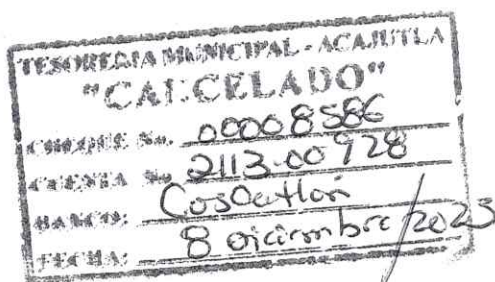 TESORERIA MUNICIPAL - ACAJUTLA
"CANCELADO"
CHEQUE No. 00008586
CUENTA No 2113-00928
BANCO: Coscatlan
FECHA: 8 diciembre 2023